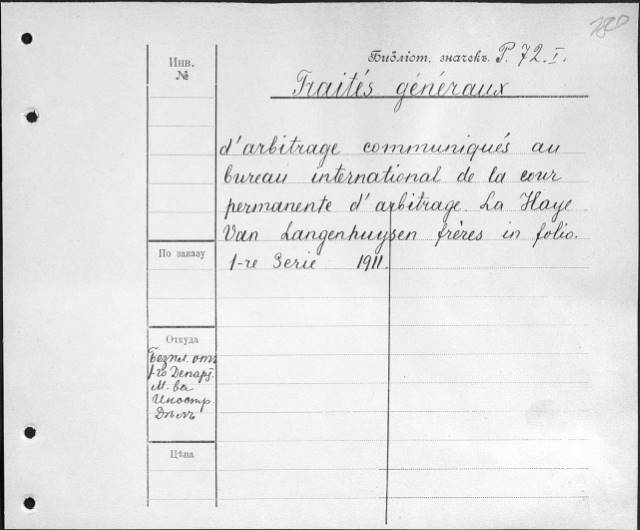 Инв.
№
Библіот. значекъ P. 72. I.
Traités généraux
d'arbitrage communiqués au
bureau international de la cour
permanente d'arbitrage. La Haye
Van Langenhuysen frères in folio.
1-re Serie 1911.
По заказу
Откуда
Безпл. отъ
1-го Департ.
М-ва
Иностр.
Дѣлъ
Цѣна